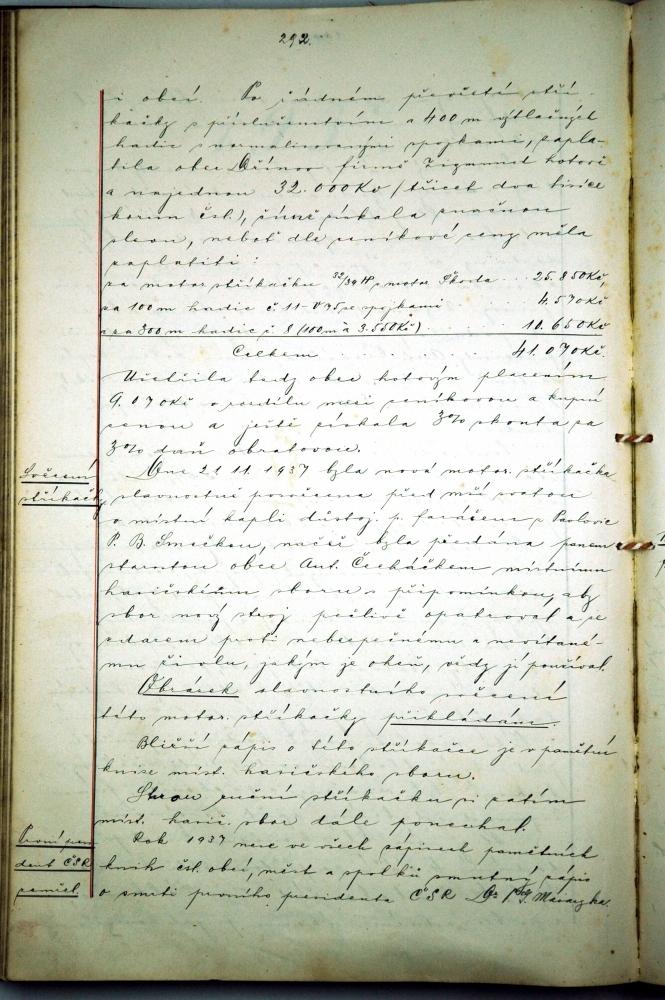 292.
i obcí. Po řádném převzetí stří-
kačky s příslušenstvím a 400 m výtlačných
hadic s normalisovanými spojkami, zapla-
tila obec firmě Zigmund hotově
a najednou 32.000 Kč /třicet dva tisíce
korun čsl./, čímž získala značnou
slevu, neboť dle ceníkové ceny měla
zaplatiti:
za motor. stříkačku 32/34 HP s motor. Škoda . . 25.850 Kč,
za 100 m hadic č. 11 se spojkami 4.570 Kč
a za 300 m hadic č. 8 (100 m à 3.550 Kč) . . . 10.650 Kč
Celkem . . . . . . . 41.070 Kč.
Ušetřila tedy obec hotovým placením
9.070 Kč v rozdílu mezi ceníkovou a kupní
cenou a ještě získala 3% skonta za
3% daň obratovou.
Svěcení
stříkačky
Dne 21. 11. 1937 byla nová motor. stříkačka
slavnostně posvěcena před mší svatou
v místní kapli důstoj. p. farářem z Pavlovic
P. B. Smečkou, načež byla předána panem
starostou obce Ant. Čecháčkem místnímu
hasičskému sboru s připomínkou, aby
sbor nový stroj pečlivě opatroval a se
zdarem proti nebezpečnému a nevítané-
mu živlu, jakým je oheň, vždy jí používal.
Obrázek slavnostního svěcení
této motor. stříkačky přikládám.
Bližší zápis o této stříkačce je v pamětní
knize míst. hasičského sboru.
Starou ruční stříkačku si zatím
míst. hasič. sbor dále ponechal.
První presi-
dent ČSR
zemřel.
Rok 1937 nese ve všech zápisech pamětních
knih čsl. obcí, měst a spolků smutný zápis
o smrti prvního presidenta ČSR Dr. T. G. Masaryka.